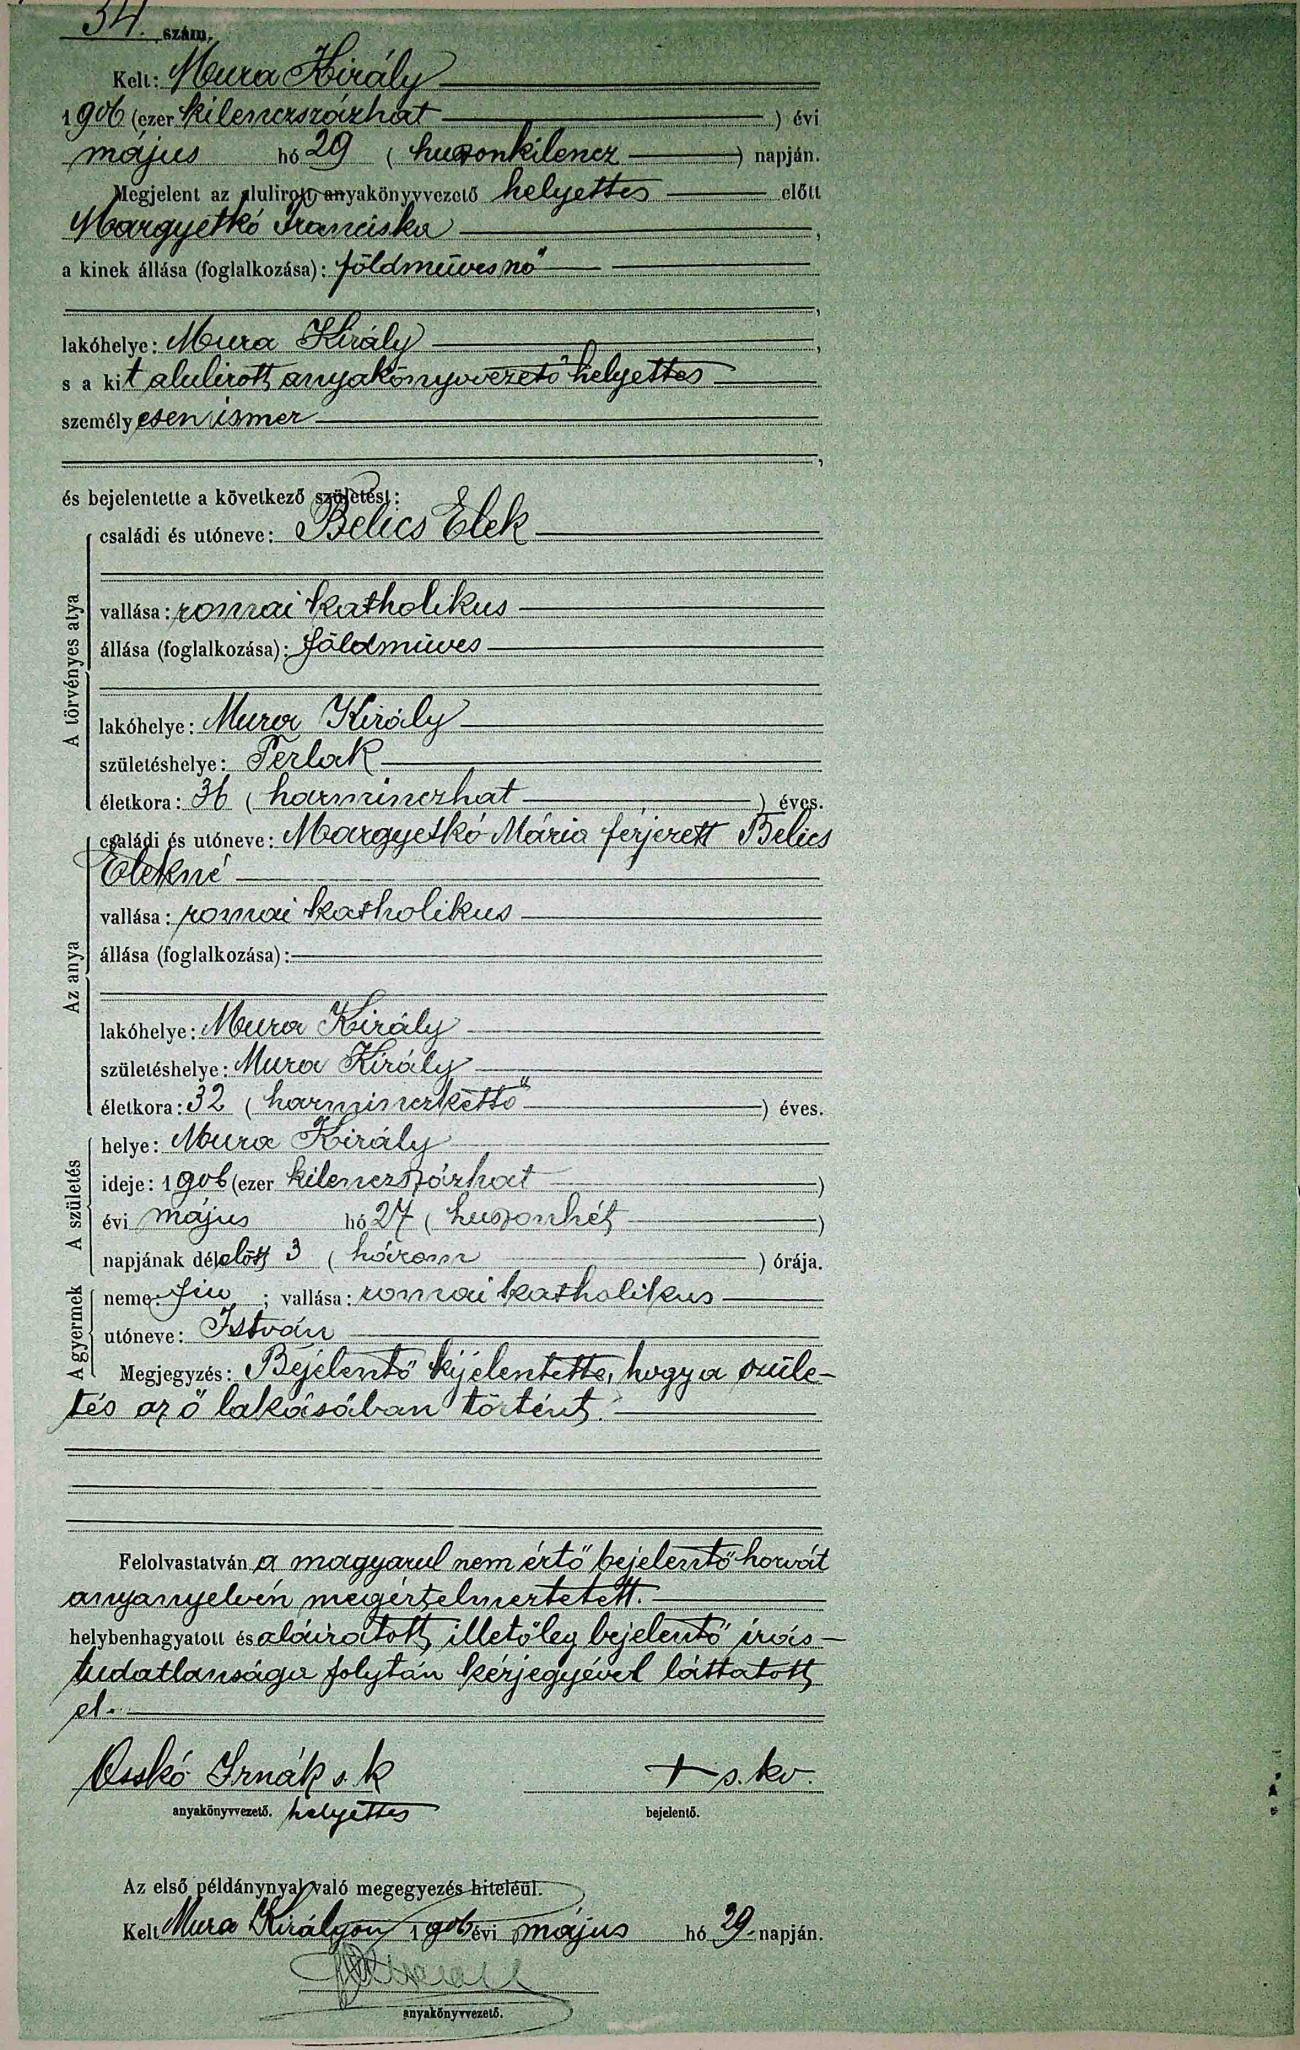 34. szám.
Kelt: Mura Király
1906 (ezer kilenczszázhat) évi
május hó 29 (huszonkilencz) napján.
Megjelent az alulirott anyakönyvvezető helyettes előtt
Margyetkó Franciska,
a kinek állása (foglalkozása): földművesnő
,
lakóhelye: Mura Király,
s a kit alulirott anyakönyvvezető helyettes
személyesen ismer
,
és bejelentette a következő születést:
A törvényes atya
családi és utóneve: Belics Elek
vallása: romai katholikus
állása (foglalkozása): földműves
lakóhelye: Mura Király
születéshelye: Perlak
életkora: 36 (harminczhat) éves.
Az anya
családi és utóneve: Margyetkó Mária férjezett Belics
Elekné
vallása: romai katholikus
állása (foglalkozása):
lakóhelye: Mura Király
születéshelye: Mura Király
életkora: 32 (harminczkettő) éves.
A születés
helye: Mura Király
ideje: 1906 (ezer kilenczszázhat)
évi május hó 27 (huszonhét)
napjának délelőtt 3 (három) órája.
A gyermek
neme: fiu; vallása: romai katholikus
utóneve: István
Megjegyzés: Bejelentő kijelentette, hogy a szüle-
tés az ő lakásában történt.
Felolvastatván a magyarul nem értő bejelentő horvát
anyanyelvén megértelmeztetett.
helybenhagyatott és aláiratott, illetőleg bejelentő irás-
tudatlansága folytán kézjegyével láttatott
el.
Osskó Irnák s. k + s. kv.
anyakönyvvezető. helyettes bejelentő.
Az első példánynyal való megegyezés hiteléül.
Kelt Mura Királyon 1906 évi május hó 29. napján.
anyakönyvvezető.